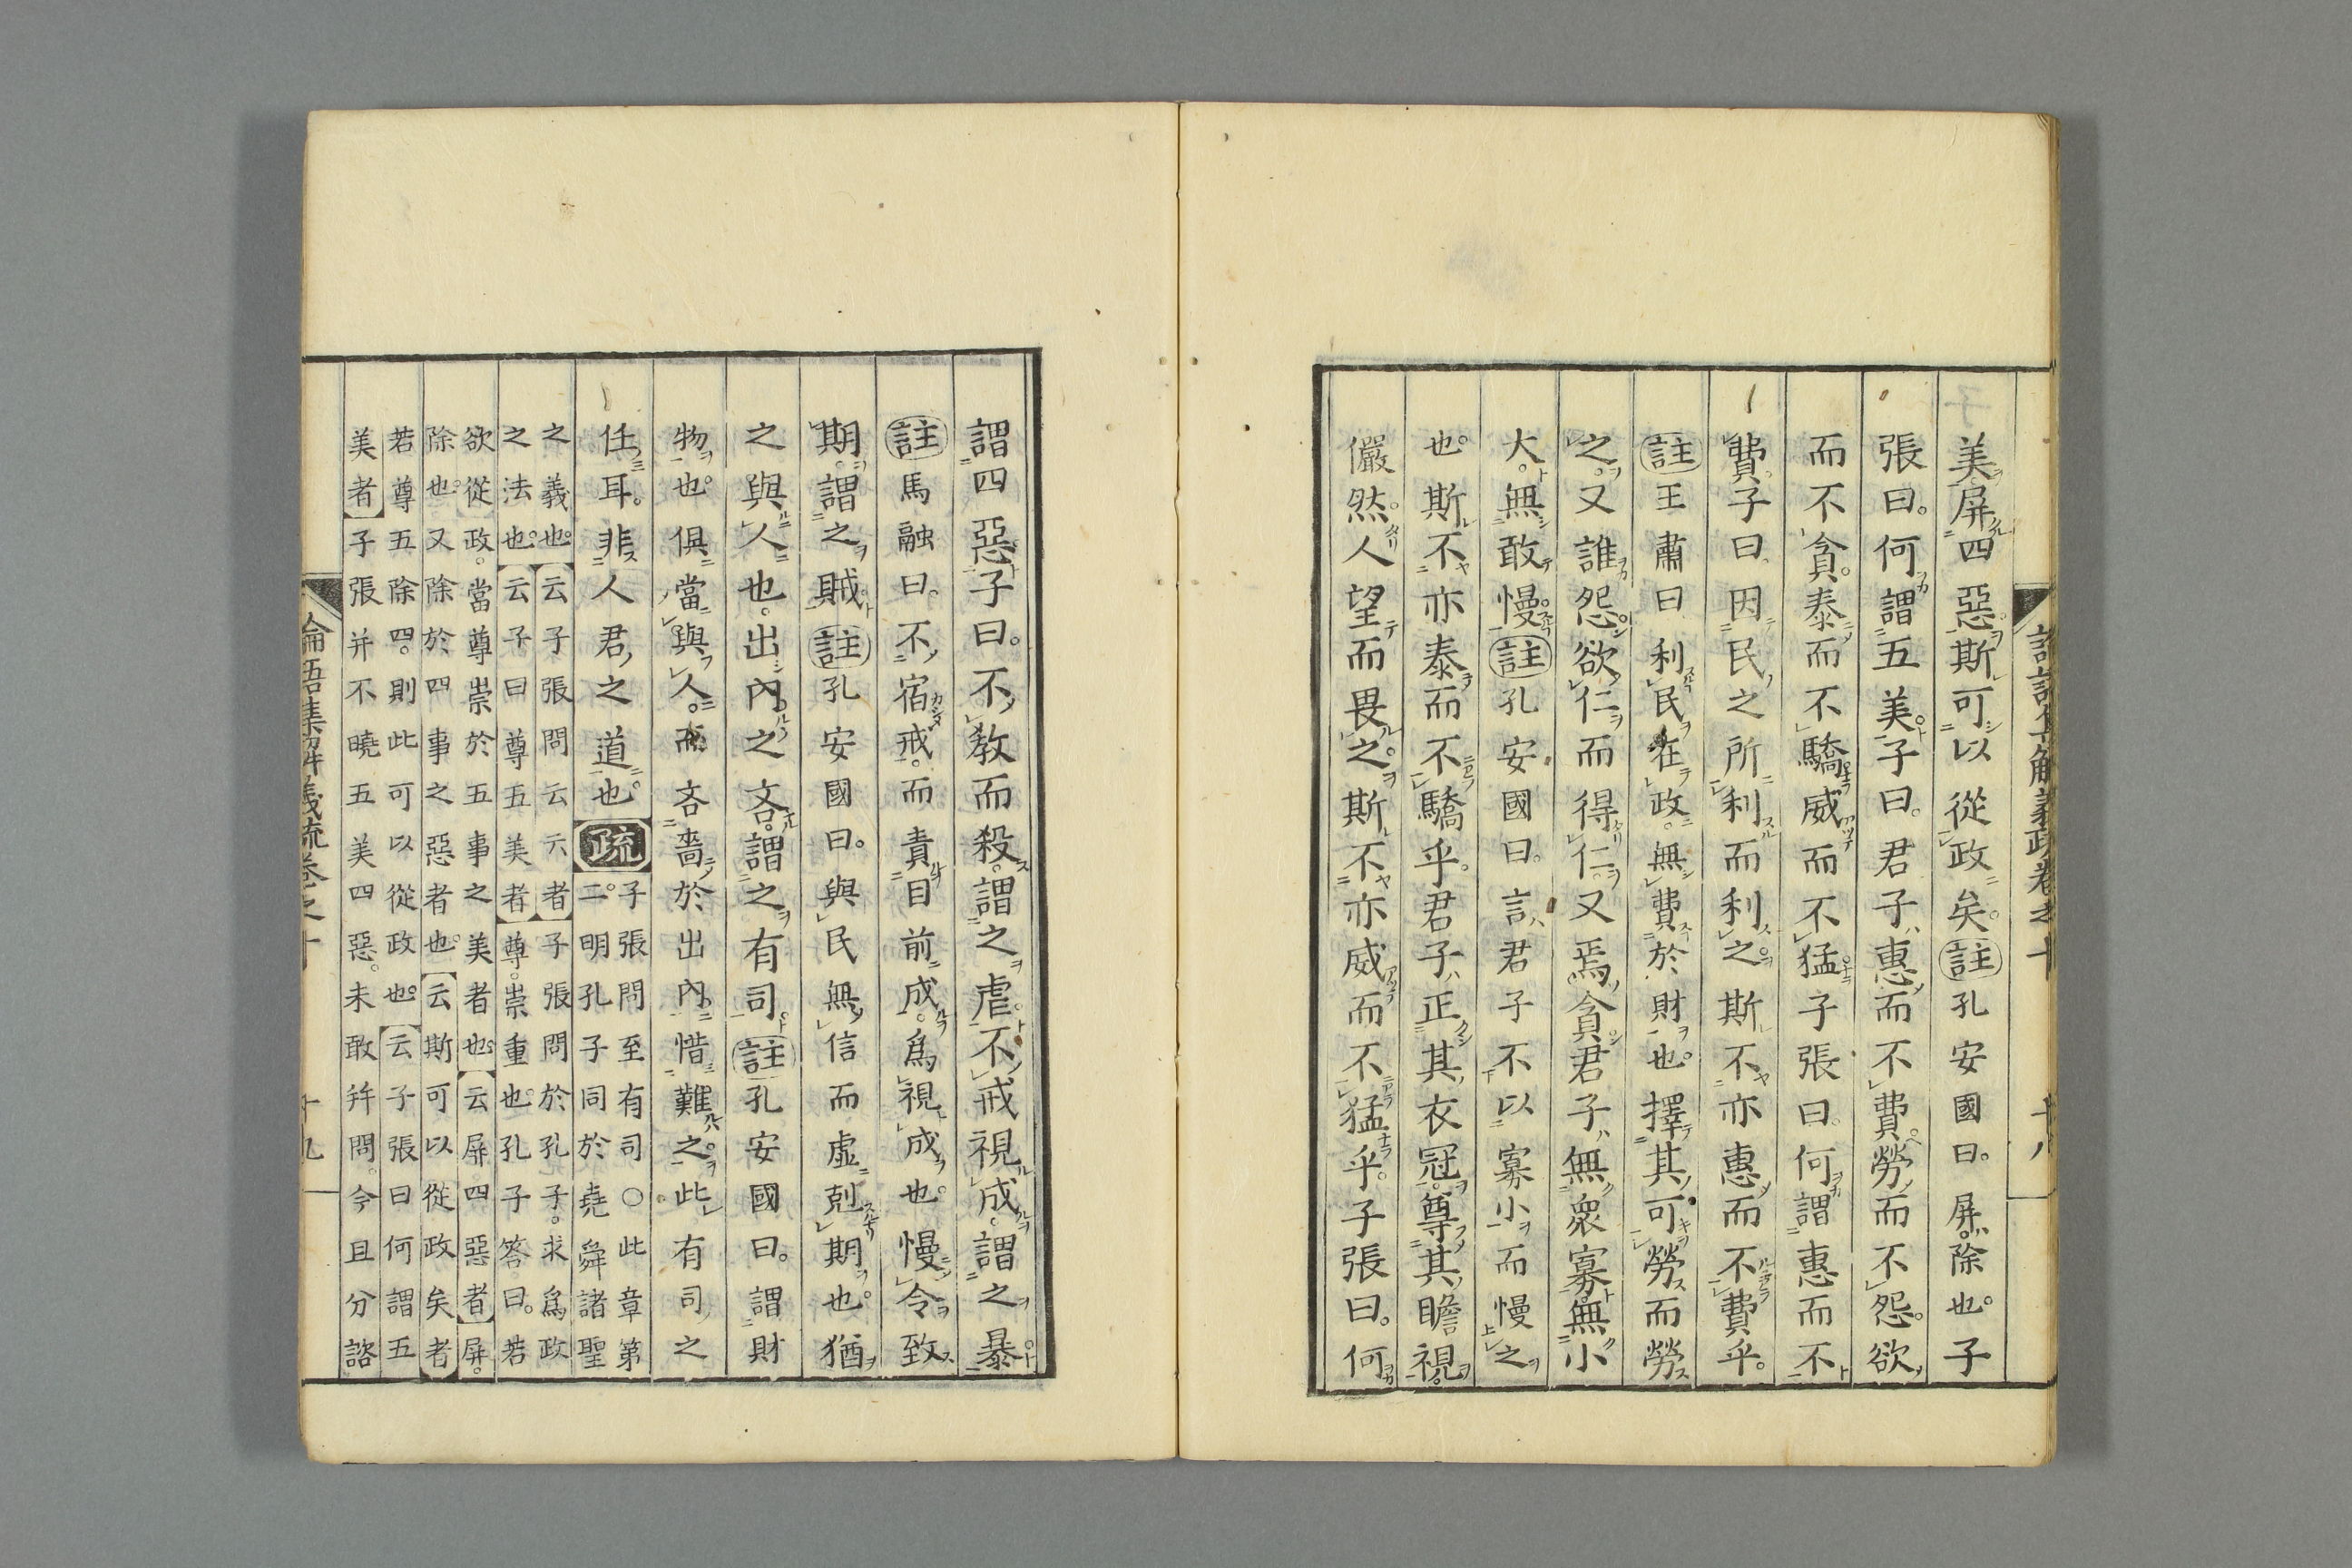 美屏四惡斯可以從政矣註孔安國曰屏除也子
張曰何謂五美子曰君子惠而不費勞而不怨欲
而不貪泰而不驕威而不猛子張曰何謂惠而不
費子曰因民之所利而利之斯不亦惠而不費乎
註王肅曰利民在政無費於財也擇其可勞而勞
之又誰怨欲仁而得仁又焉貪君子無衆寡無小
大無敢慢註孔安國曰言君子不以寡小而慢之
也斯不亦泰而不驕乎君子正其衣冠尊其瞻視
儼然人望而畏之斯不亦威而不猛乎子張曰何
謂四惡子曰不教而殺謂之虐不戒視成謂之暴
註馬融曰不宿戒而責目前成爲視成也慢令致
期謂之賊註孔安國曰與民無信而虛剋期也猶
之與人也出內之吝謂之有司註孔安國曰謂財
物也俱當與人而吝嗇於出內惜難之此有司之
任耳非人君之道也疏子張問至有司○此章第
二明孔子同於堯舜諸聖
之義也云子張問云云者子張問於孔子求爲政
之法也云子曰尊五美者尊崇重也孔子答曰若
欲從政當尊崇於五事之美者也云屏四惡者屏
除也又除於四事之惡者也云斯可以從政矣者
若尊五除四則此可以從政也云子張曰何謂五
美者子張并不曉五美四惡未敢并問今且分諮
論語集解義疏卷之十 十九